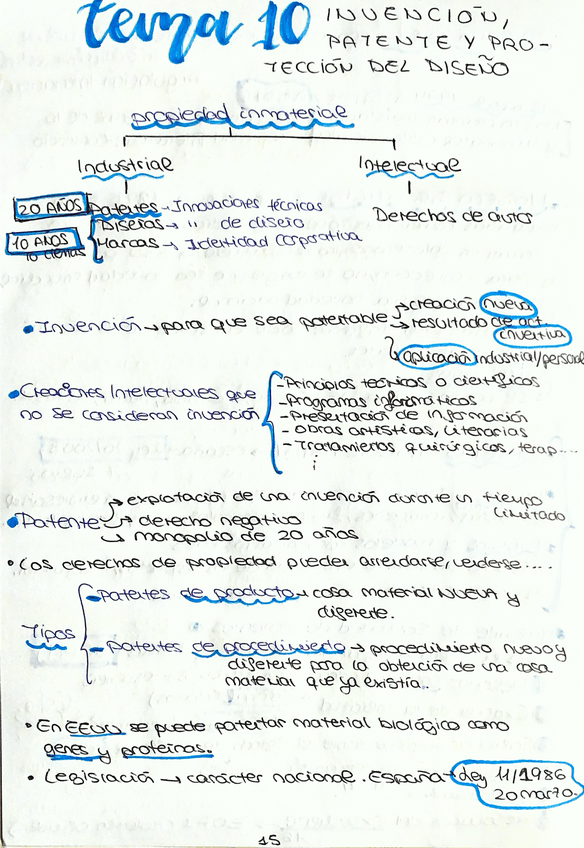 tema 10 INVENCIÓN,
PATENTE Y PRO-
TECCIÓN DEL DISEÑO
propiedad inmaterial
Industrial
Intelectual
20 AÑOS Patentes → Innovaciones técnicas
Diseños → " de diseño
10 AÑOS Marcas → Identidad corporativa
Derechos de autor
• Invención → para que sea patentable → creación nueva
→ resultado de act. inventiva
→ aplicación industrial/personal
• Creaciones Intelectuales que
no se consideran invención
- Principios teóricos o científicos
- Programas informáticos
- Presentación de información
- Obras artísticas, literarias
- Tratamientos quirúrgicos, terap...
⋮
• Patente → explotación de una invención durante un tiempo limitado
→ derecho negativo
→ monopolio de 20 años
• Los derechos de propiedad pueden arrendarse, venderse....
Tipos
- Patentes de producto → cosa material NUEVA y
diferente.
- Patentes de procedimiento → procedimiento nuevo y
diferente para la obtención de una cosa
material que ya existía..
• En EEUU se puede patentar material biológico como
genes y proteínas.
• Legislación → carácter nacional. España → ley 11/1986
20 marzo.
15